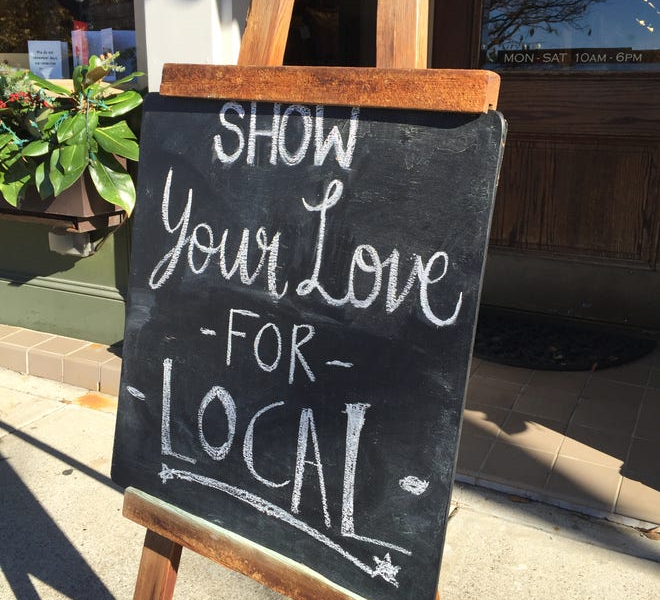 MON - SAT 10AM - 6PM
SHOW
Your Love
- FOR -
- LOCAL -